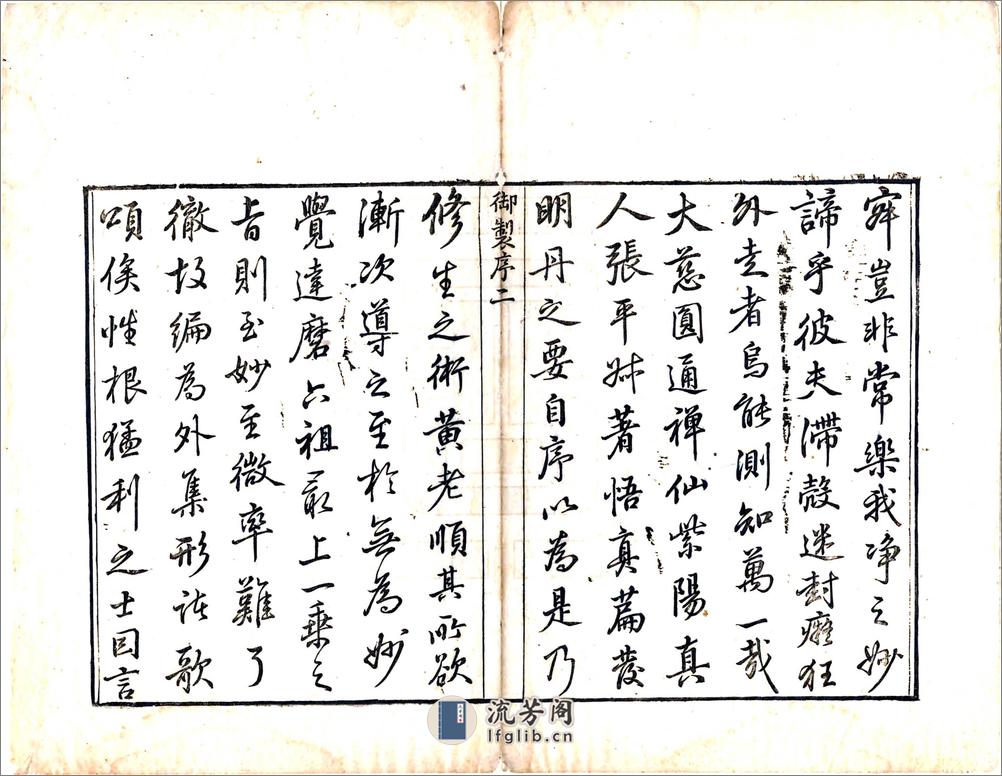 穽豈非常樂我净之妙
諦乎彼夫滯殼迷封癡狂
外走者烏能測知萬一哉
大慈圓通禅仙紫陽真
人張平叔著悟真篇發
明丹之要自序以為是乃
御製序二
修生之術黄老順其所欲
漸次導之至於無為妙
覺達磨六祖最上一乘之
旨則至妙至微率難了
徹故編為外集形諸歌
頌俟性根猛利之士因言
流芳阁
lfglib.cn